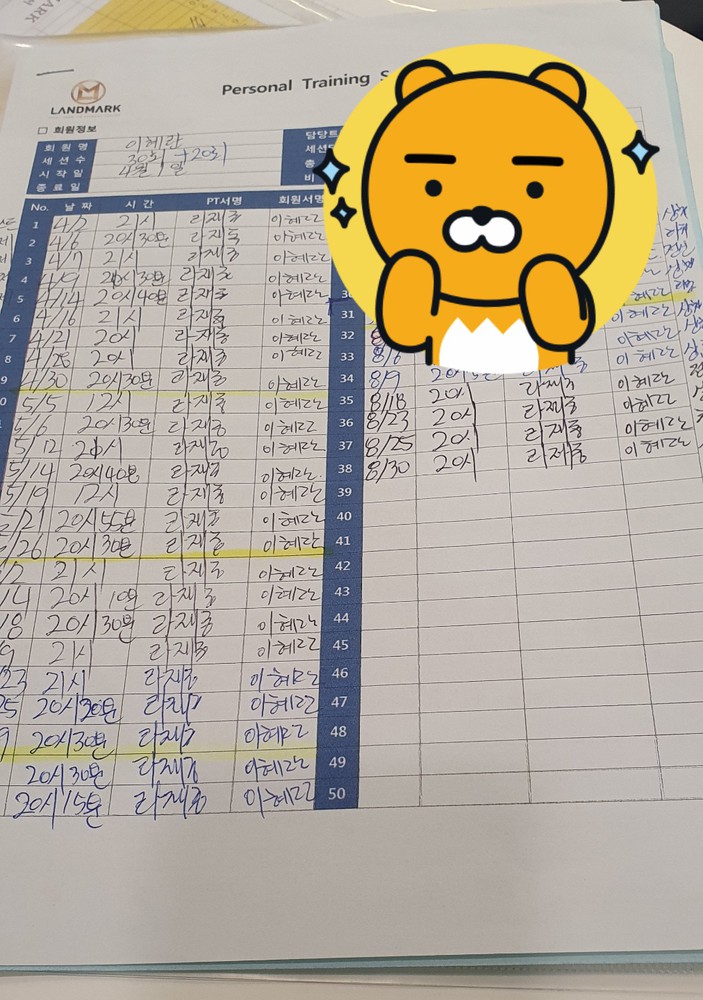 Personal Training S
LANDMARK
□ 회원정보
회 원 명 이혜란
세 션 수 30회 → 20회
시 작 일 4월 1일
종 료 일
담당트
세션
총
비
No. 날 짜 시 간 PT서명 회원서명
1 4/2 21시 라재중 이혜란
2 4/6 20시30분 라재중 이혜란
3 4/7 21시 라재중 이혜란
4 4/9 20시30분 라재중 이혜란
5 4/14 20시40분 라재중 이혜란
6 4/16 21시 라재중 이혜란
7 4/21 20시 라재중 이혜란
8 4/28 20시 라재중 이혜란
9 4/30 20시30분 라재중 이혜란
0 5/5 12시 라재중 이혜란
5/6 20시30분 라재중 이혜란
5/12 21시 라재중 이혜란
5/14 20시40분 라재중 이혜란
5/19 12시 라재중 이혜란
5/21 20시55분 라재중 이혜란
5/26 20시30분 라재중 이혜란
/2 21시 라재중 이혜란
/14 20시10분 라재중 이혜란
/18 20시30분 라재중 이혜란
/9 21시 라재중 이혜란
/23 21시 라재중 이혜란
25 20시30분 라재중 이혜란
9 20시30분 라재중 이혜란
20시30분 라재중 이혜란
20시15분 라재중 이혜란
30 이혜란
31 이혜란
32 8 이혜란
33 8/6 이혜란
34 8/9 20시 라재중 이혜란
35 8/18 20시 라재중 이혜란
36 8/23 20시 라재중 이혜란
37 8/25 20시 라재중 이혜란
38 8/30 20시 라재중 이혜란
39
40
41
42
43
44
45
46
47
48
49
50